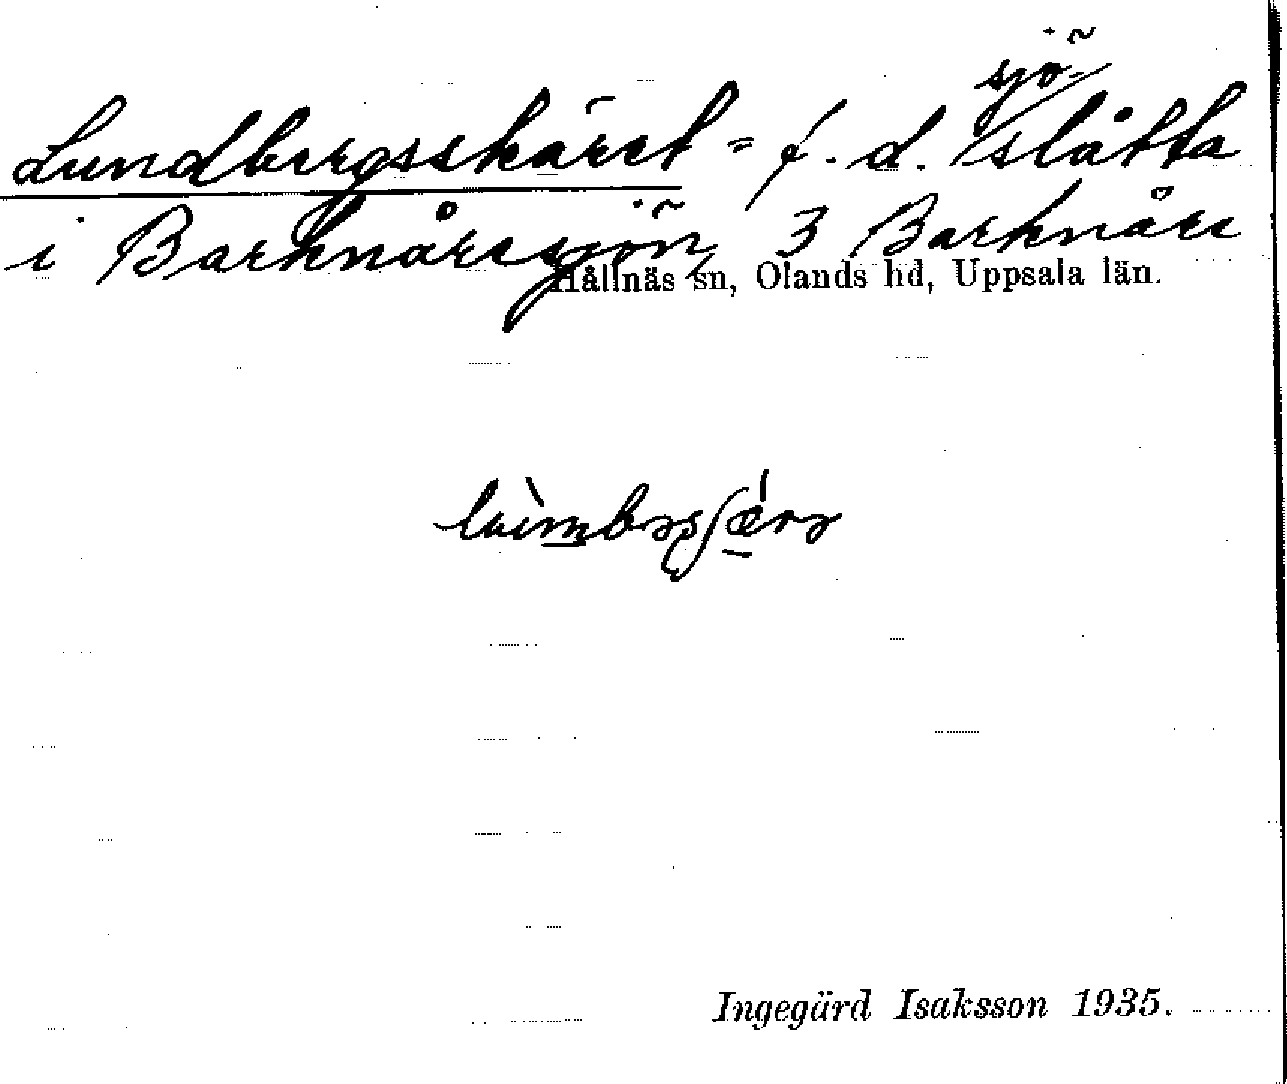 Lundbergsskäret = f. d. sjöslåtta
i Barknåresjön, 3 Barknåre
Hållnäs sn, Olands hd, Uppsala län.
Ingegärd Isaksson 1935.